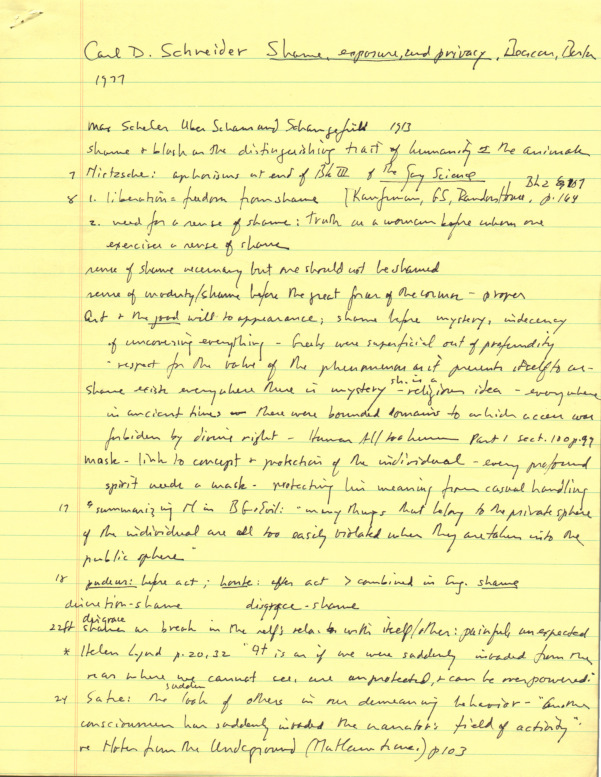 Carl D. Schneider Shame, exposure, and privacy, Beacon, Boston
1977
Max Scheler Uber Scham und Schamgefühl 1913
shame & blush as the distinguishing trait of humanity the animals
7 Nietzsche: aphorisms at end of Bk III of the Gay Science
Bk 2 107
8 1. liberation = freedom from shame [Kaufman, GS, Random House, p. 164
2. need for a sense of shame: truth as a woman before whom one
exercises a sense of shame
sense of shame necessary but one should not be shamed
sense of modesty/shame before the great forces of the cosmos - proper
Art & the good will to appearance; shame before mystery, indecency
of uncovering everything - Greeks were superficial out of profundity
- respect for the value of the phenomenon as it presents itself to us -
sh. is a
shame exists everywhere there is mystery - religious idea - everywhere
in ancient times there were bounded domains to which access was
forbiden by divine right - Human All too human Part 1 sect. 100 p. 99
mask - link to concept & protection of the individual - every profound
spirit needs a mask - protecting his meaning from casual handling
17 "summarizing N in BG+Evil: "many things that belong to the private sphere
of the individual are all too easily violated when they are taken into the
public sphere"
18 pudeur: before act; honte: after act > combined in Eng. shame
discretion-shame disgrace-shame
disgrace
22ff shame as break in the self's rela. with itself/other: painful, unexpected
* Helen Lynd p. 20, 32 "It is as if we were suddenly invaded from the
rear where we cannot see, are unprotected, & can be overpowered."
sudden
24 Satre: the look of others in our demeaning behavior - "another
consciousness has suddenly invaded the narrator's field of activity".
re Notes from the Underground (Matlaw trans.) p 103